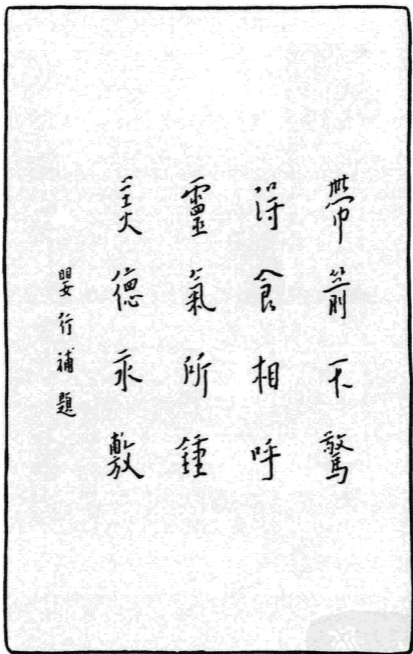 帶箭不驚
得食相呼
靈氣所鍾
美德永敷
嬰行補題